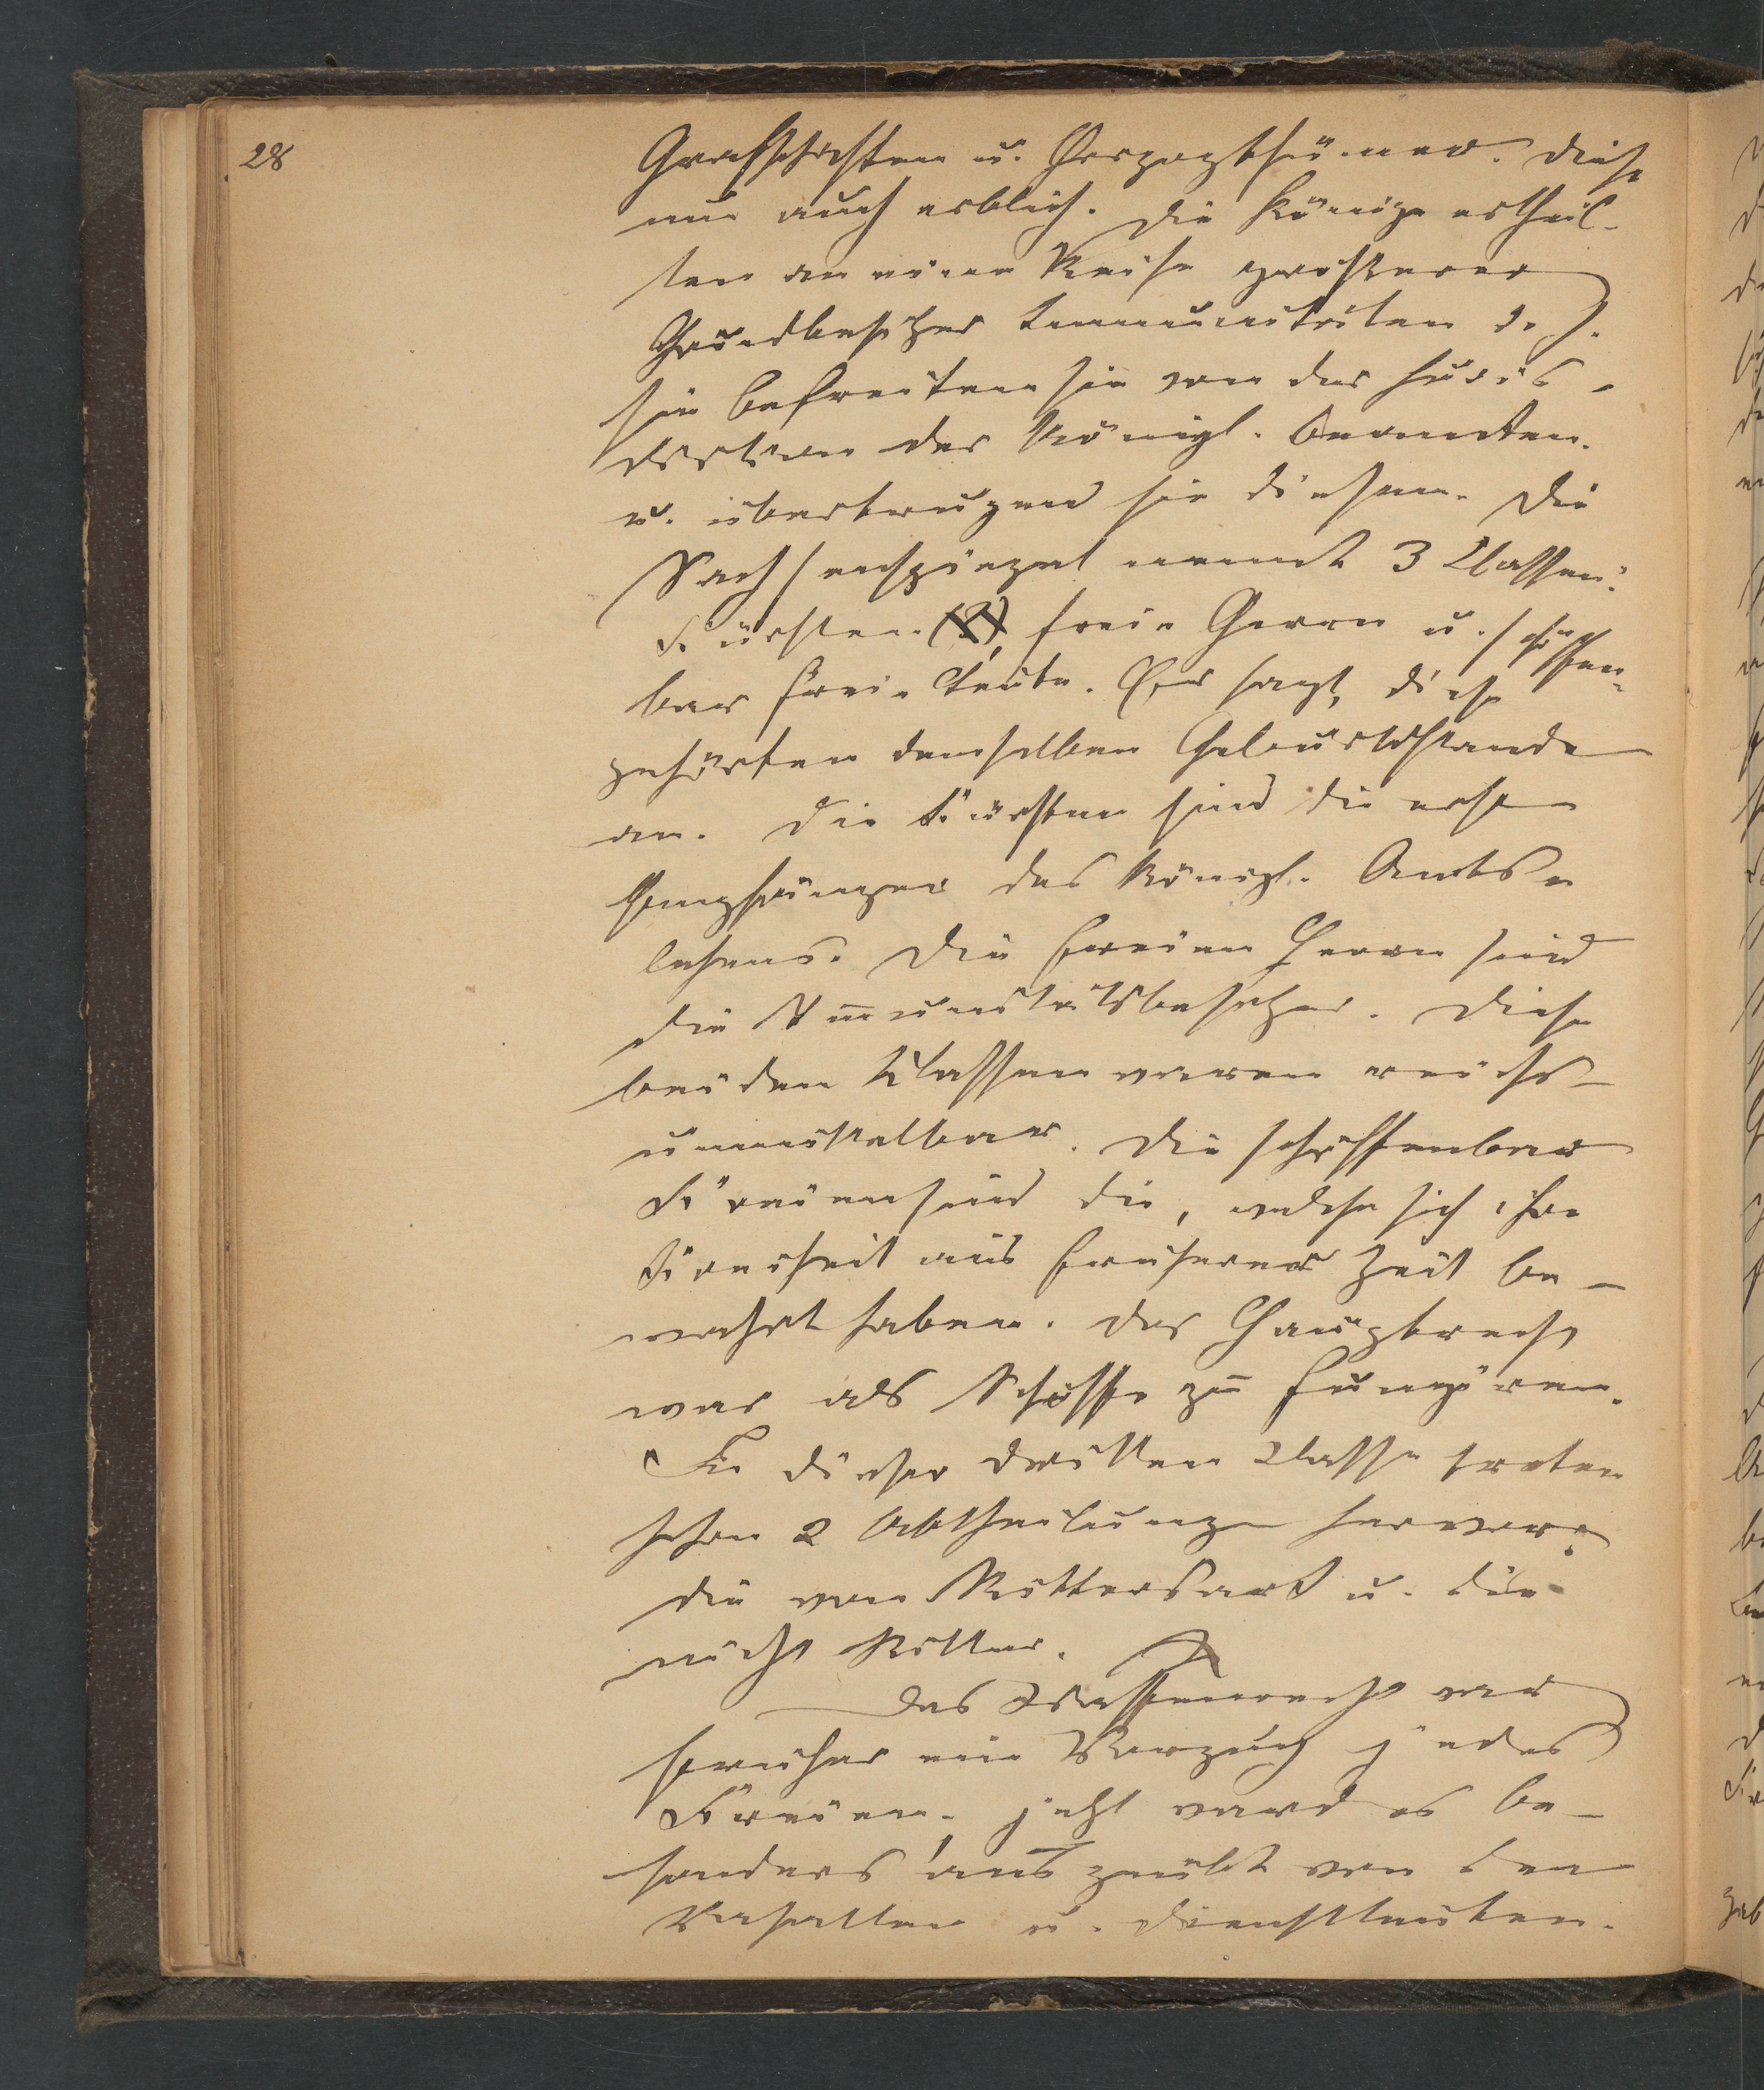 28
Grafschaften u. Herzogthümer. Diese
nun auch erblich. Die Könige ertheil-
ten an eine Reihe grösserer
Grundbesitzer Immunitäten d. h.
sie befreiten sie von der Juris-
diction der Königl. Beamten
u. übertrugen sie diesen. Die
Sachsenspiegel nennt 3 Classen:
Fürsten, freie Herrn u. schöffen-
bar freie Leute. Er sagt, diese
gehörten demselben Geburtsstande
an. Die Fürsten sind die ersten
Empfänger des Königl. Amts-
lehens. Die freien Herrn sind
die Immunitätsbesitzer. Diese
beiden Klassen waren reichs-
unmittelbar. Die schöffenbar
Freien sind die, welche sich ihre
Freiheit aus früherer Zeit be-
wahrt haben. Der Hauptrecht
war als Schöffe zu fungiren.
In dieser dritten Classe treten
schon 2 Abtheilungen hervor:
die von Rittersart u. die
nicht Ritter.
Das Waffenrecht war
früher ein Vorzug jedes
Freien, jetzt ward es be-
sonders ausgeübt von den
Vasallen u. Dienstleuten.